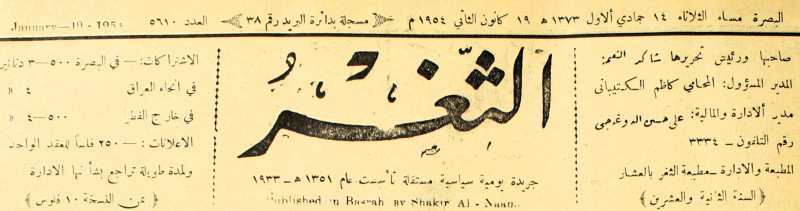 البصرة مساء الثلاثاء ١٤ جمادي ألاول ١٣٧٣ هـ ١٩ كانون الثاني ١٩٥٤ م
مسجلة بدائرة البريد رقم ٣٨
العدد ٥٦١٠
January—19-1954
صاحبها ورئيس تحريرها شاكر النعمة
المدير المسؤول: المحامي كاظم الكتيباني
مدير ألادارة والمالية: علي حسين
رقم التلفون — ٣٣٣٤
المطبعة والادارة — مطبعة الثغر بالعشار
(السنة الثانية والعشرين)
الثغر
جريدة يومية سياسية مستقلة تأسست عام ١٣٥١ هـ — ١٩٣٣
Published in Basrah by Shakir Al-Naama
الاشتراكات: — في البصرة ٥٠٠—٣ دنانير
في انحاء العراق ٤ »
في خارج القطر ٥٠٠—٤ »
الاعلانات: — ٢٥٠ فلساً للعقد الواحد
ولمدة طويلة تراجع بشأنها الادارة
(ثمن النسخة ١٠ فلوس)